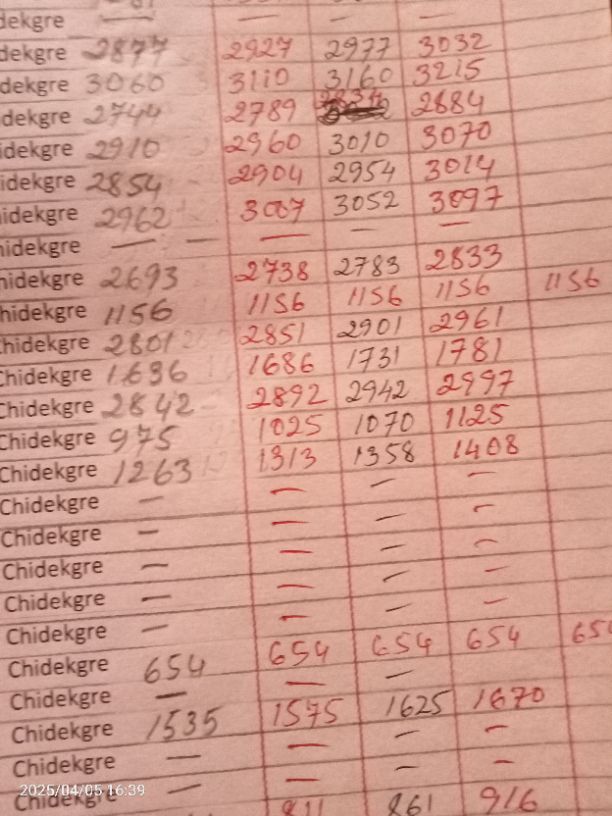 dekgre — — — —
dekgre 2877 2927 2977 3032
dekgre 3060 3110 3160 3215
dekgre 2744 2789 2834 2884
idekgre 2910 2960 3010 3070
idekgre 2854 2904 2954 3014
idekgre 2962 3007 3052 3097
hidekgre — — — —
hidekgre 2693 2738 2783 2833
hidekgre 1156 1156 1156 1156 1156
hidekgre 2801 2851 2901 2961
Chidekgre 1636 1686 1731 1781
Chidekgre 2842 2892 2942 2997
Chidekgre 975 1025 1070 1125
Chidekgre 1263 1313 1358 1408
Chidekgre — — — —
Chidekgre — — — —
Chidekgre — — — —
Chidekgre — — — —
Chidekgre — — — —
Chidekgre 654 654 654 654 654
Chidekgre — — —
Chidekgre 1535 1575 1625 1670
Chidekgre — — — —
Chidekgre — — — —
811 861 916
2025/04/05 16:39